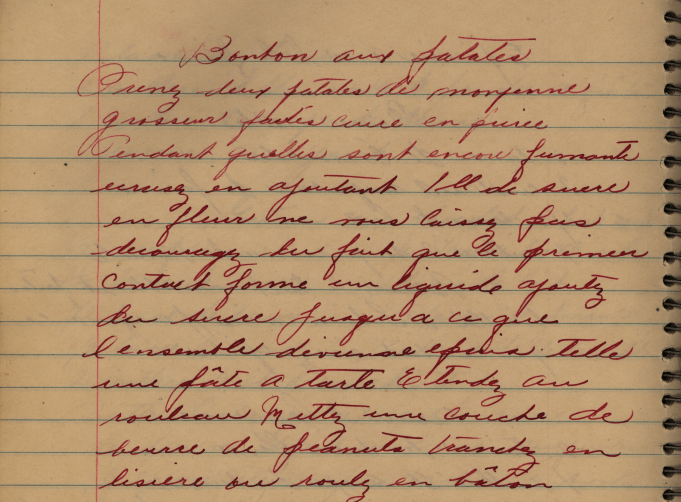 Bonbon aux patates
Prenez deux patates de moyenne
grosseur faites cuire en puree
Pendant quelles sont encore fumante
ecrasez en ajoutant 1 ll de sucre
en fleur ne vous laissez pas
decouragez du fait que le premier
contact forme un liquide ajoutez
du sucre jusqu a ce que
l'ensemble devienne epais telle
une pâte a tarte Etendez au
rouleau Mettez une couche de
beurre de peanuts tranchez en
lisiere ou roulez en bâton